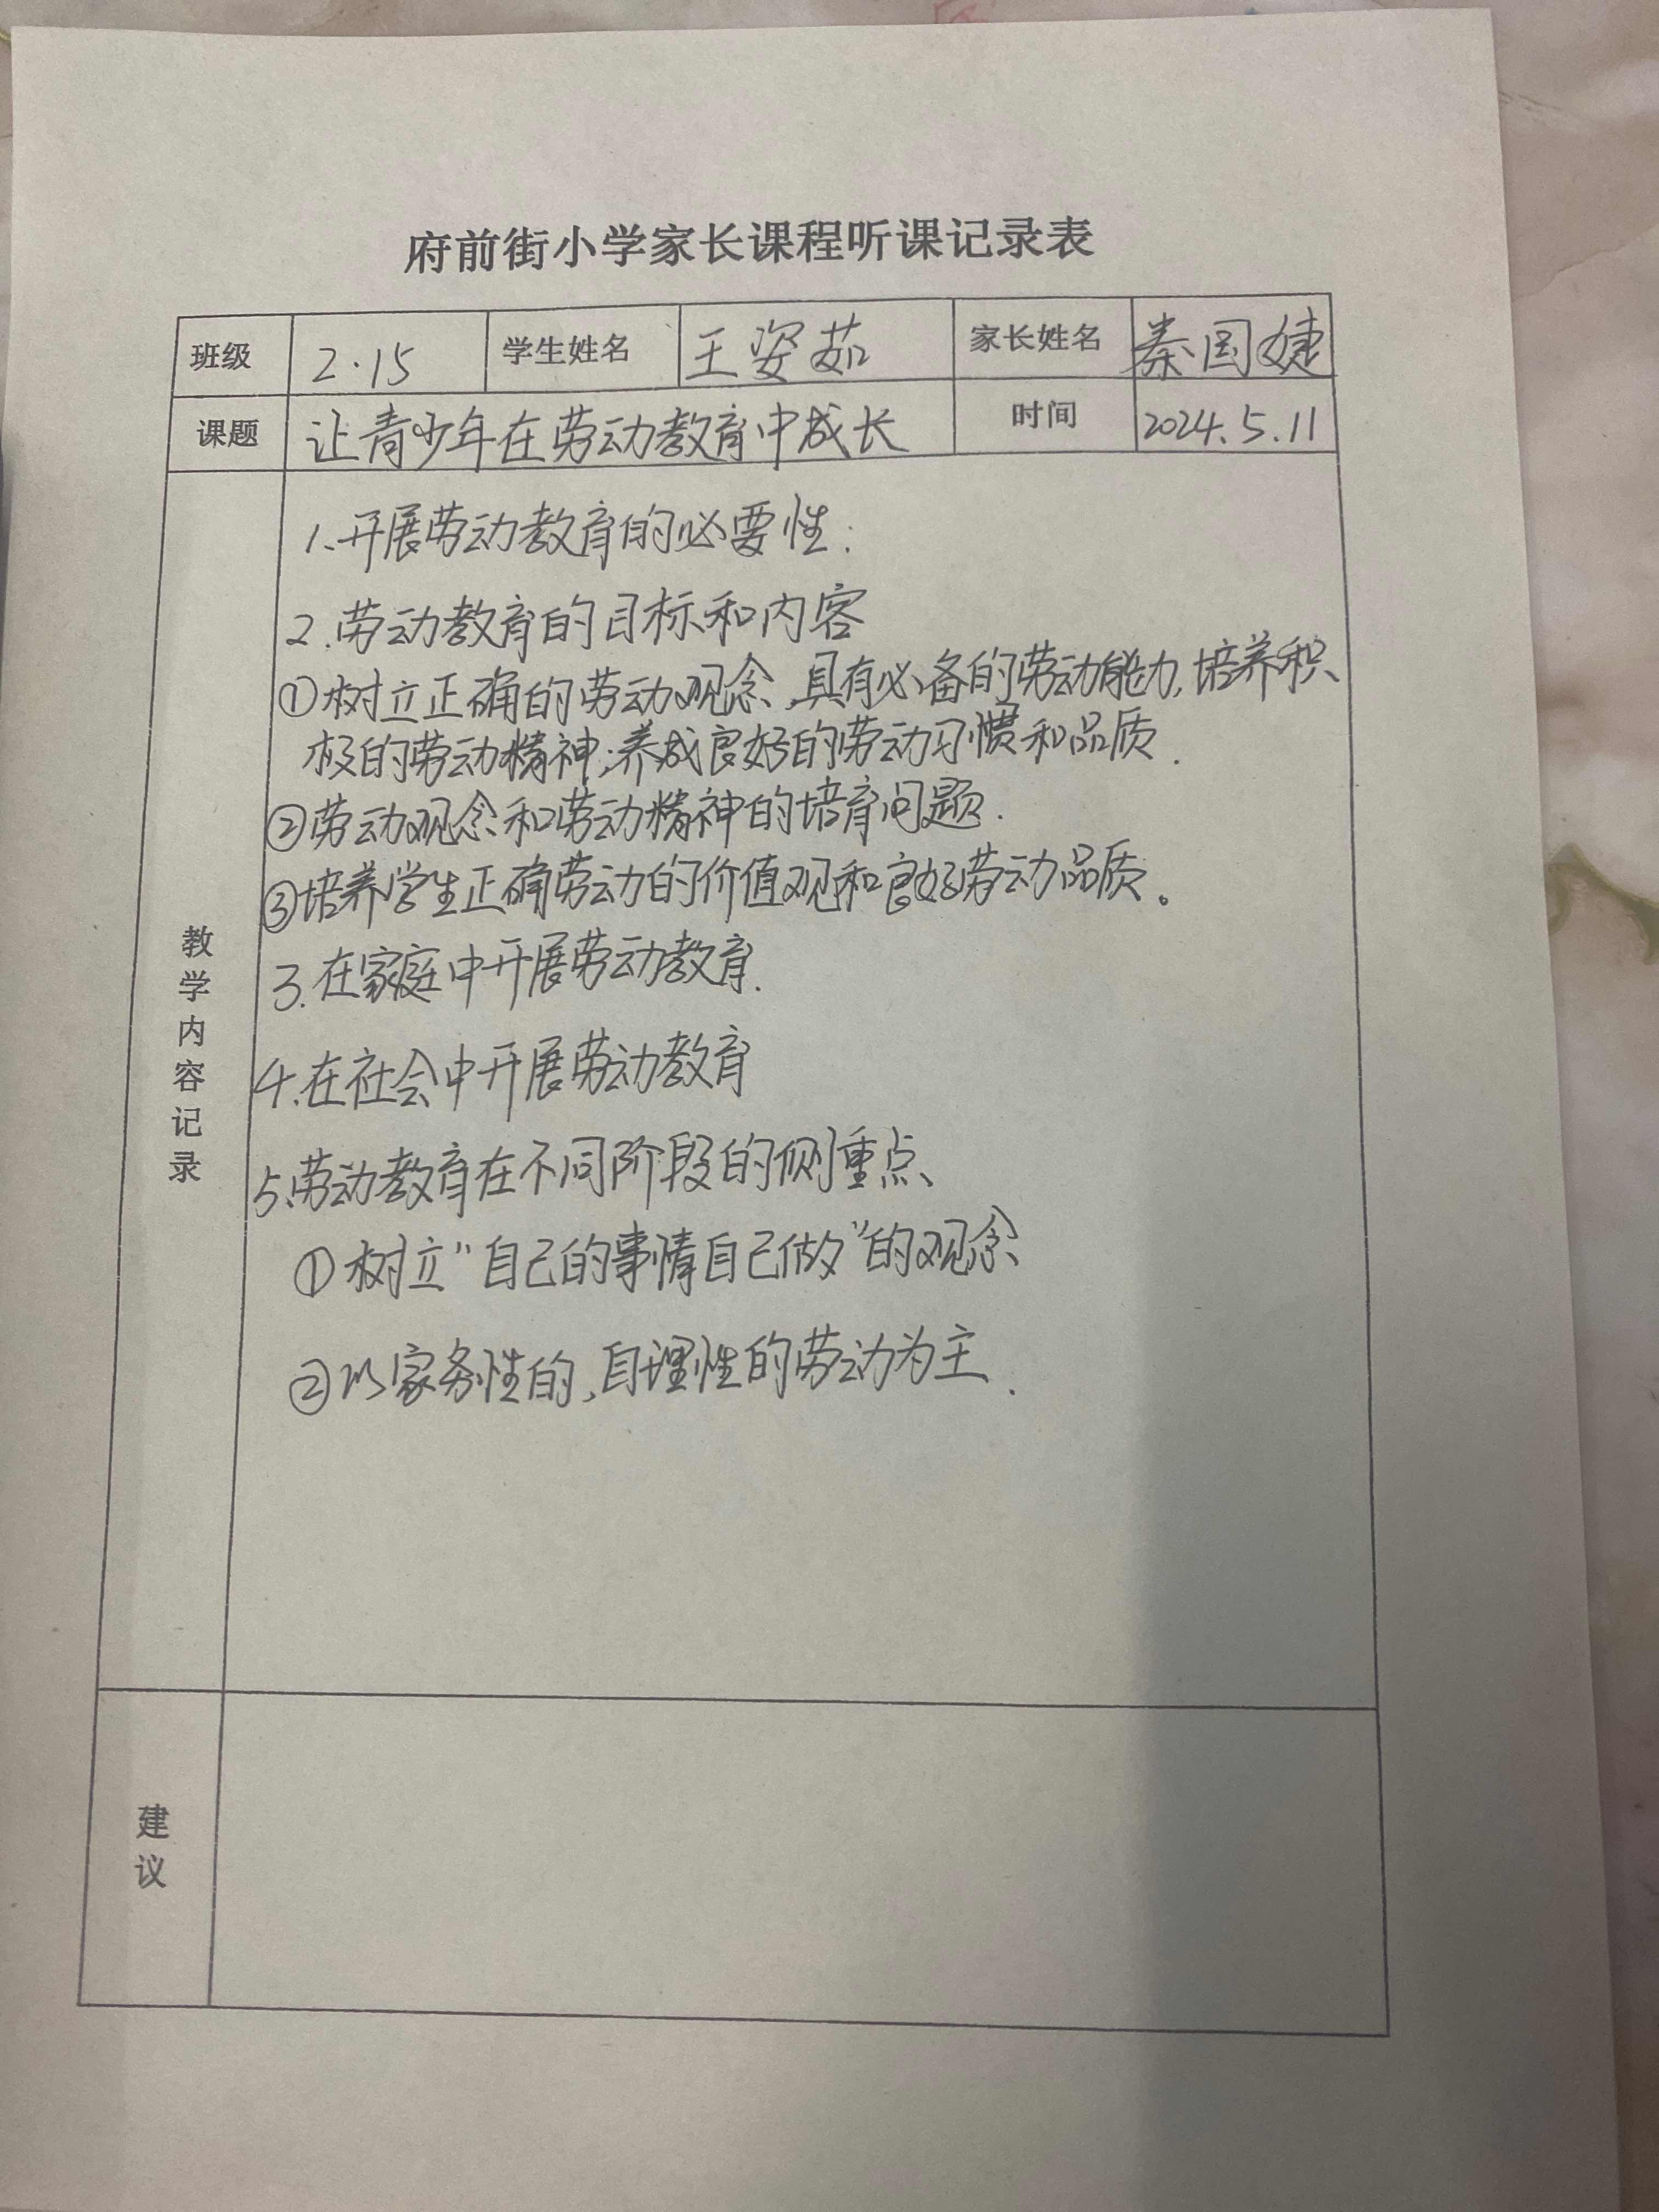 府前街小学家长课程听课记录表
班级 2.15 学生姓名 王姿茹 家长姓名 秦国婕
课题 让青少年在劳动教育中成长 时间 2024.5.11
教学内容记录
1、开展劳动教育的必要性:
2.劳动教育的目标和内容
①树立正确的劳动观念,具有必备的劳动能力,培养积
极的劳动精神;养成良好的劳动习惯和品质.
②劳动观念和劳动精神的培育问题.
③培养学生正确劳动的价值观和良好劳动品质。
3.在家庭中开展劳动教育.
4.在社会中开展劳动教育
5、劳动教育在不同阶段的侧重点、
①树立"自己的事情自己做"的观念
②以家务性的,自理性的劳动为主.
建议